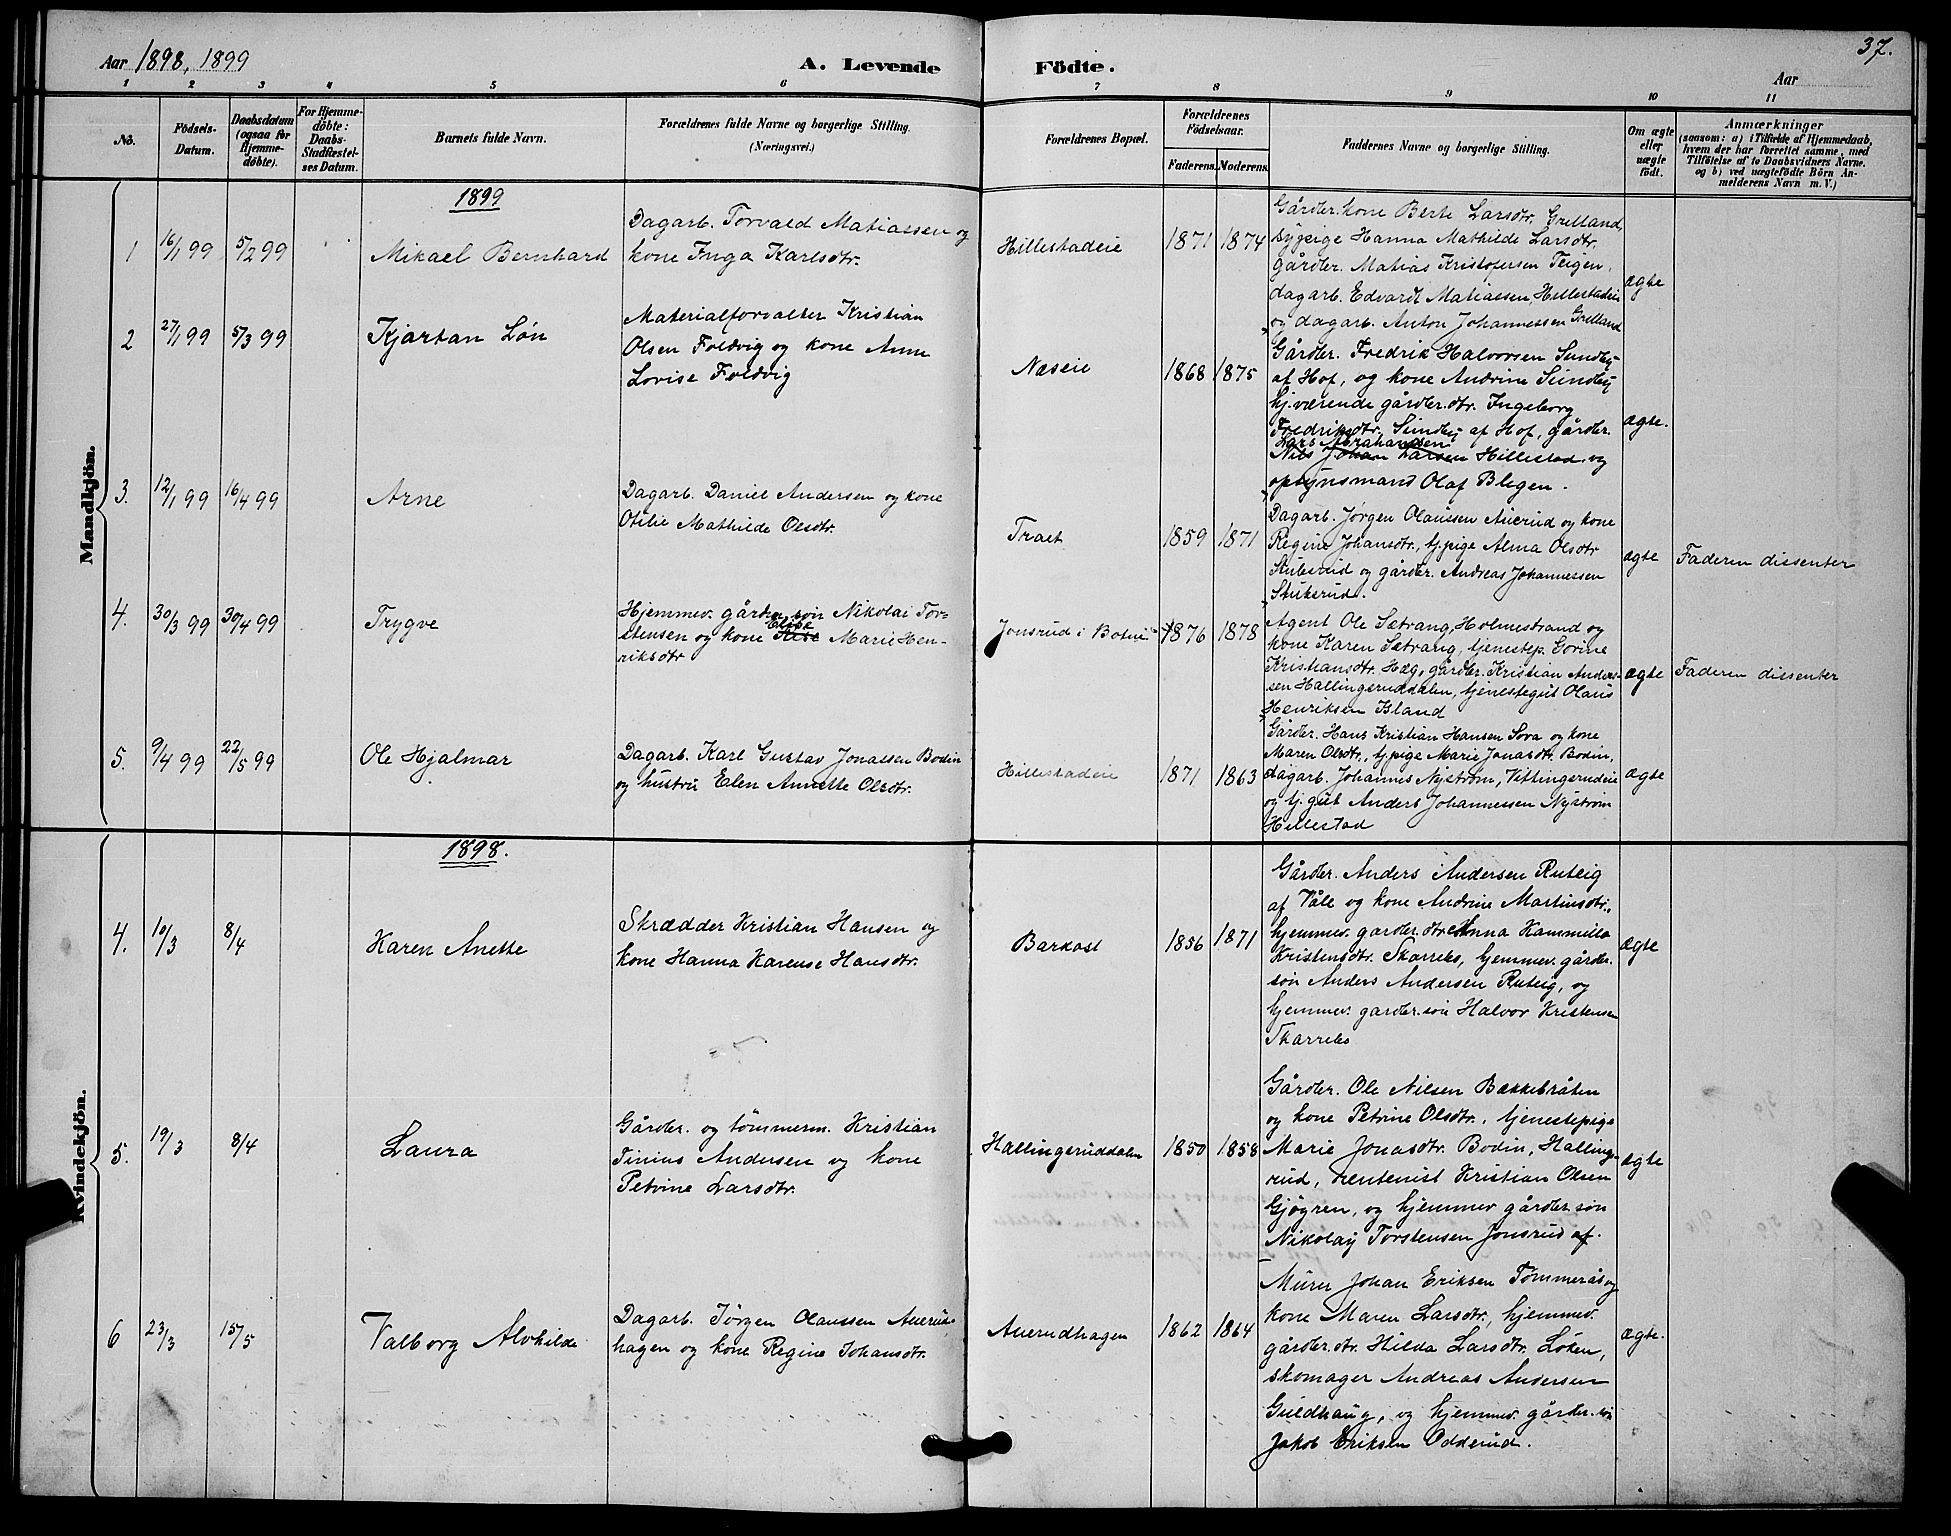 37.
Aar 1898, 1899
A. Levende Födte.
Aar
1 2 3 4 5 6 7 8 9 10 11
No.
Födsels-
Datum.
Daabsdatum
(ogsaa for
Hjemme-
döbte).
For Hjemme-
döbte:
Daabs-
Stadfæstel-
ses Datum.
Barnets fulde Navn.
Forældrenes fulde Navne og borgerlige Stilling.
(Næringsvei.)
Forældrenes Bopæl.
Forældrenes
Födselsaar.
Faderens. Moderens.
Faddernes Navne og borgerlige Stilling.
Om ægte
eller
uægte
födt.
Anmærkninger
(saasom: a) i Tilfælde af Hjemmedaab,
hvem der har forrettet samme, med
Tilföielse af to Daabsvidners Navne.
og b) ved uægtefödte Börn An-
melderens Navn m. V.)
Mandkjön.
1899
1
16/1 99
5/2 99
Mikael Bernhard
Dagarb. Torvald Matiassen og
kone Inga Karlsdtr.
Hillestadeie
1871
1874
Gårdbr. kone Berte Larsdtr. Grelland,
sypige Hanna Mathilde Larsdtr.
gårdbr. Matias Kristofersen Teigen,
dagarb. Edvardt Matiassen, Hillestadeie
og dagarb. Anton Johannessen Grelland
ægte
2
27/1 99
5/3 99
Kjartan Lön
Materialforvalter Kristian
Olsen Foldvig og kone Anne
Lovise Foldvig
Næseie
1868
1875
Gårdbr. Fredrik Halvorsen Sundby
af Hof, og kone Andrine Sundby
hj.værende gårdbr.dtr. Ingeborg
Fredriksdtr. Sundby af Hof, gårdbr.
Lars Abrahamsen
Nils Johan Larsen Hillestad og
opsynsmand Olaf Blegen.
ægte.
3.
12/1 99
16/4 99
Arne
Dagarb. Daniel Andersen og kone
Otilie Mathilde Olsdtr.
1859
1871
Dagarb. Jørgen Olaussen Auerud og kone
Regine Johansdtr., tj.pige Alma Olsdtr
Stuberud og gårdbr. Andreas Johannessen
ægte
Faderen dissenter
4.
30/3 99
30/4 99
Trygve
Hjemmev. gårdbr. søn Nikolai Tor-
stensen og kone Elise Marie Hen-
riksdtr
Jonsrud i Botne
1876
1878
Agent Ole Sætrang, Holmestrand og
kone Karen Sætrang, tjenestep. Gorine
Kristiansdtr. Hæg, gårdbr. Kristian Anders-
sen Hallingsruddalen, tjenestegut Olaus
Henriksen Island
ægte
Faderen dissenter
5.
9/4 99
22/5 99
Ole Hjalmar
Dagarb. Karl Gustav Jonassen Bodin
og hustru Elen Annette Olsdtr.
Hillestadeie
1871
1863
Gårdbr. Hans Kristian Hansen Sova og kone
Maren Olsdtr., tj.pige Marie Jonasdtr. Bodin,
dagarb. Johannes Nystrøm, Vittingsrudeie
og tj.gut Anders Johannessen Nystrøm
Hillestad
ægte
Kvindekjön.
1898.
4.
10/3
8/4
Karen Anette
Skrædder Kristian Hansen og
kone Hanna Karense Hansdtr.
Barkost
1856
1871
Gårdbr. Anders Andersen Ruteig
af Våle og kone Andrine Martinsdtr.,
hjemmev. gardbr. dtr. Anna Kammilla
Kristensdtr. Skarrebo, hjemmev. gårdbr.
søn Anders Andersen Ruteig, og
hjemmev. gardbr. søn Halvor Kristensen
Skarrebo
ægte
5.
19/3
8/4
Laura
Gårdbr. og tømmerm. Kristian
Tinius Andersen og kone
Petrine Larsdtr.
Hallingsruddalen
1850
1858
Gårdbr. Ole Nilsen Bækkebråten
og kone Petrine Olsdtr., tjenestepige
Marie Jonasdtr. Bodin, Hallings-
rud, rentenist Kristian Olsen
Gjøgren, og hjemmev gårdbr. søn
Nikolay Torstensen Jonsrud af.
ægte
6
23/3
15/5
Valborg Alvhilde
Dagarb. Jørgen Olaussen Auerud-
hagen og kone Regine Johansdtr.
Auerudhagen
1862
1864
Murer Johan Eriksen Tømmerås og
kone Maren Larsdtr., hjemmev.
gårdbr. dtr. Hilda Larsdtr. Løken,
skomager Andreas Andersen
Guldhaug, og hjemmev. gårdbr. søn
Jakob Eriksen Odderud.
ægte.